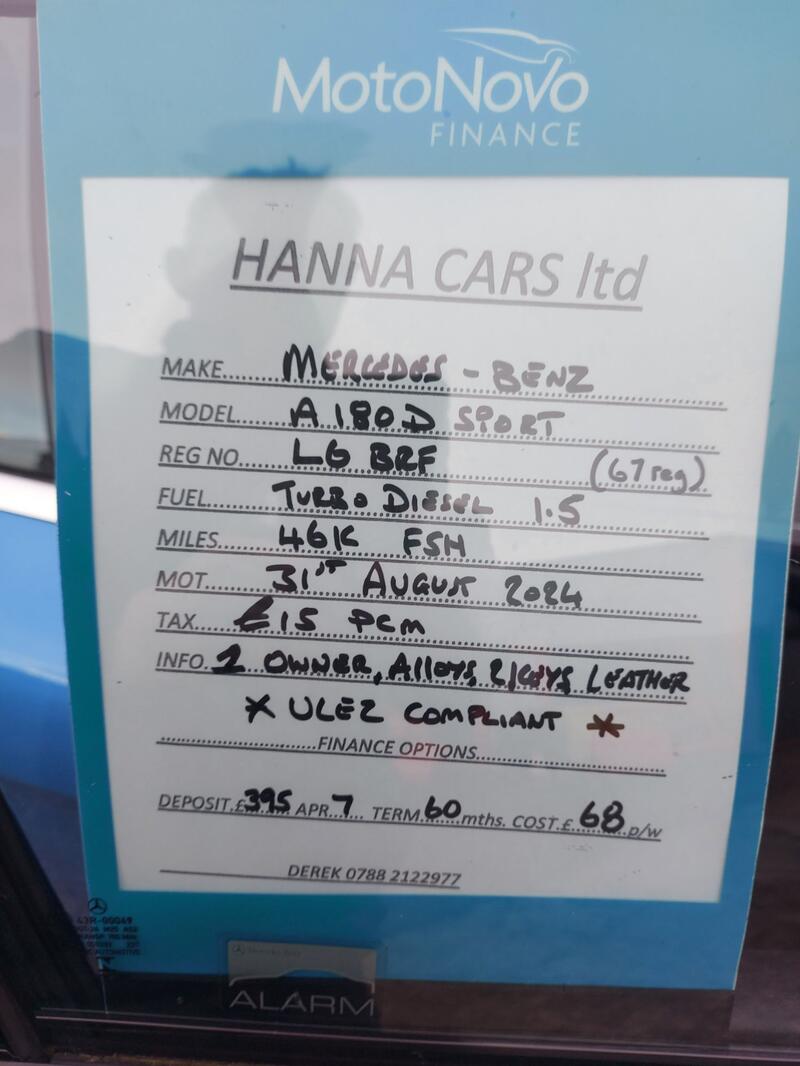 MotoNovo
FINANCE
HANNA CARS ltd
MAKE MERCEDES - BENZ
MODEL A 180 D SPORT
REG NO. LG BRF (67 reg)
FUEL TURBO DIESEL 1.5
MILES 46K FSH
MOT 31ST AUGUST 2024
TAX £15 PCM
INFO. 1 OWNER, Alloys, 2 KEYS, LEATHER
* ULEZ COMPLIANT *
FINANCE OPTIONS
DEPOSIT £395 APR 7 TERM 60 mths. COST £ 68 p/w
DEREK 0788 2122977
43R-00049
ALARM